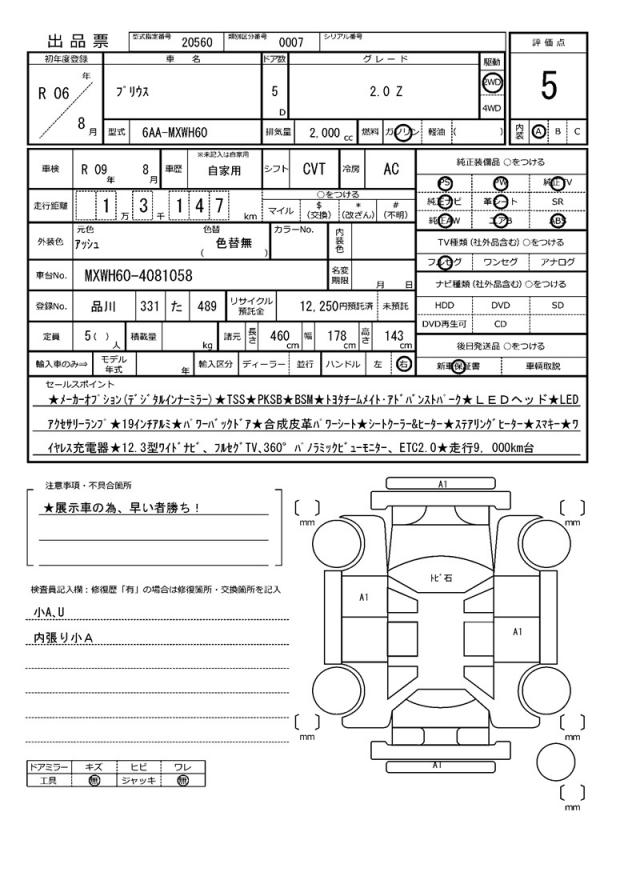 出品票 型式指定番号 20560 類別区分番号 0007 シリアル番号
評価点
5
内装 A B C
初年度登録 車名 ドア数 グレード 駆動
R 06 年 8 月 プリウス 5 D 2.0 Z 2WD 4WD
型式 6AA-MXWH60 排気量 2,000 cc 燃料 ガソリン 軽油 ( )
車検 R 09 年 8 月 車歴 ※未記入は自家用 自家用 シフト CVT 冷房 AC
走行距離 1 万 3 千 1 4 7 km
○をつける
マイル $ (交換) * (改ざん) # (不明)
外装色 元色 アッシュ 色替 ( 色替無 ) カラーNo. 内装色
車台No. MXWH60-4081058 名変期限 月 日
登録No. 品川 331 た 489 リサイクル預託金 12,250円預託済 未預託
定員 5( ) 人 積載量 kg 諸元 長さ 460 cm 幅 178 cm 高さ 143 cm
輸入車のみ⇒ モデル年式 年 輸入区分 ディーラー 並行 ハンドル 左 右
純正装備品 ○をつける
PS PW 純正TV
純正ナビ 革シート SR
純正AW エアB ABS
TV種類(社外品含む)○をつける
フルセグ ワンセグ アナログ
ナビ種類(社外品含む)○をつける
HDD DVD SD
DVD再生可 CD
後日発送品 ○をつける
新車保証書 車輌取説
セールスポイント
★メーカーオプション(デジタルインナーミラー)★TSS★PKSB★BSM★トヨタチームメイト・アドバンストパーク★LEDヘッド★LED
アクセサリーランプ★19インチアルミ★パワーバックドア★合成皮革パワーシート★シートクーラー&ヒーター★ステアリングヒーター★スマキー★ワ
イヤレス充電器★12.3型ワイドナビ、フルセグTV、360° パノラミックビューモニター、ETC2.0★走行9,000km台
注意事項・不具合箇所
★展示車の為、早い者勝ち!
検査員記入欄:修復歴「有」の場合は修復箇所・交換箇所を記入
小A、U
内張り小A
ドアミラー キズ ヒビ ワレ
工具 無 ジャッキ 無
A1
mm
mm
トビ石
A1
A1
mm
mm
A1
mm